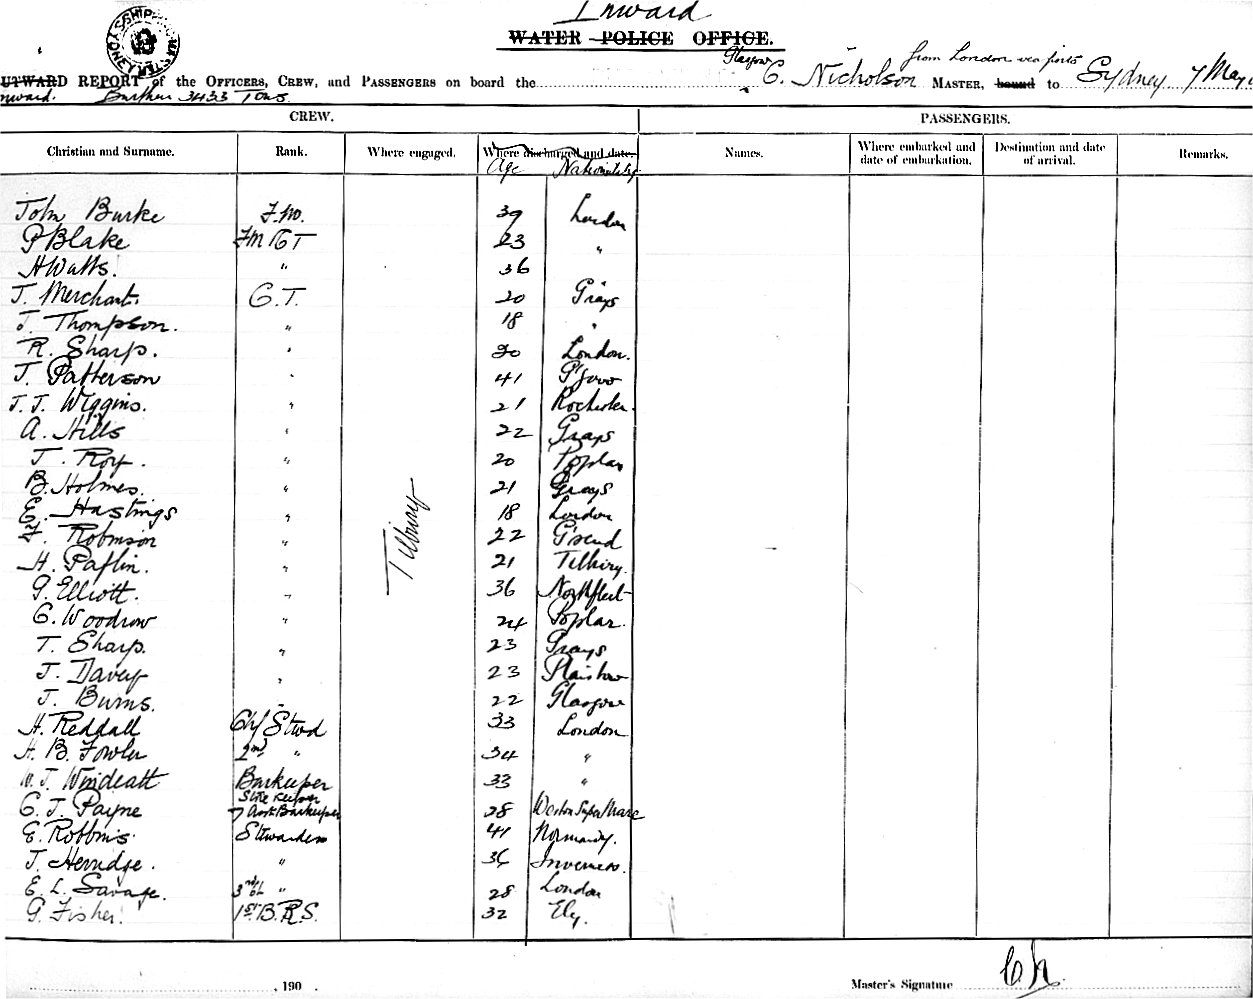 Inward
WATER POLICE OFFICE.
OUTWARD REPORT of the OFFICERS, CREW, and PASSENGERS on board the C. Nicholson MASTER, from London via ports bound to Sydney 7 May
Inward. Burthen 3433 Tons Glasgow
CREW. PASSENGERS.
Christian and Surname. Rank. Where engaged. Where discharged and date. Names. Where embarked and date of embarkation. Destination and date of arrival. Remarks.
Age Nationality
John Burke F.M. 39 London
P Blake FM & T 23 "
H Watts. " 36 "
J. Merchant. C.T. 20 Grays
J. Thompson. " 18 "
R. Sharp. " 20 London.
J. Patterson " 41 G'gow
J. J. Wiggins. " 21 Rochester.
A. Hills " 22 Grays
J. Roy. " 20 Poplar
B. Holmes. " 21 Grays
E. Hastings " 18 London
F. Robinson " 22 G'send
H. Paflin. " 21 Tilbury.
G. Elliott. " 36 Northfleet
C. Woodrow " 24 Poplar.
T. Sharp. " 23 Grays
J. Davey " 23 Plaistow
J. Burns. " 22 Glasgow
Tilbury
H. Reddall Chf Stwd 33 London
H. B. Fowler 2nd " 34 "
W. J. Windeatt Barkeeper 33 "
C. J. Payne Store Keeper & Asst Barkeeper 28 Weston Super Mare
E. Robbins. Stewardess 41 Normandy.
J. Herridge. " 36 Inverness.
E. L. Savage. 3rd Cl " 28 London
G. Fisher. 1st B.R.S. 32 Ely.
, 190 . Master's Signature CN